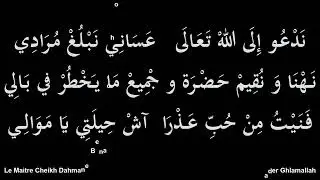 نَدْعُو إِلَى اللهْ تَعَالَى عَسَانِيْ نَبْلُغْ مُرَادِي
نَهْنَا وَ نُقِيمْ حَضْرَة و جْمِيعْ مَا يَخْطُرْ فِي بَالِي
فَنَيْتُ مِنْ حُبِّ عَذْرَا آشْ حِيلَتِي يَا مَوَالِي
Le Maitre Cheikh Dahmane Ben a
der Ghlamallah